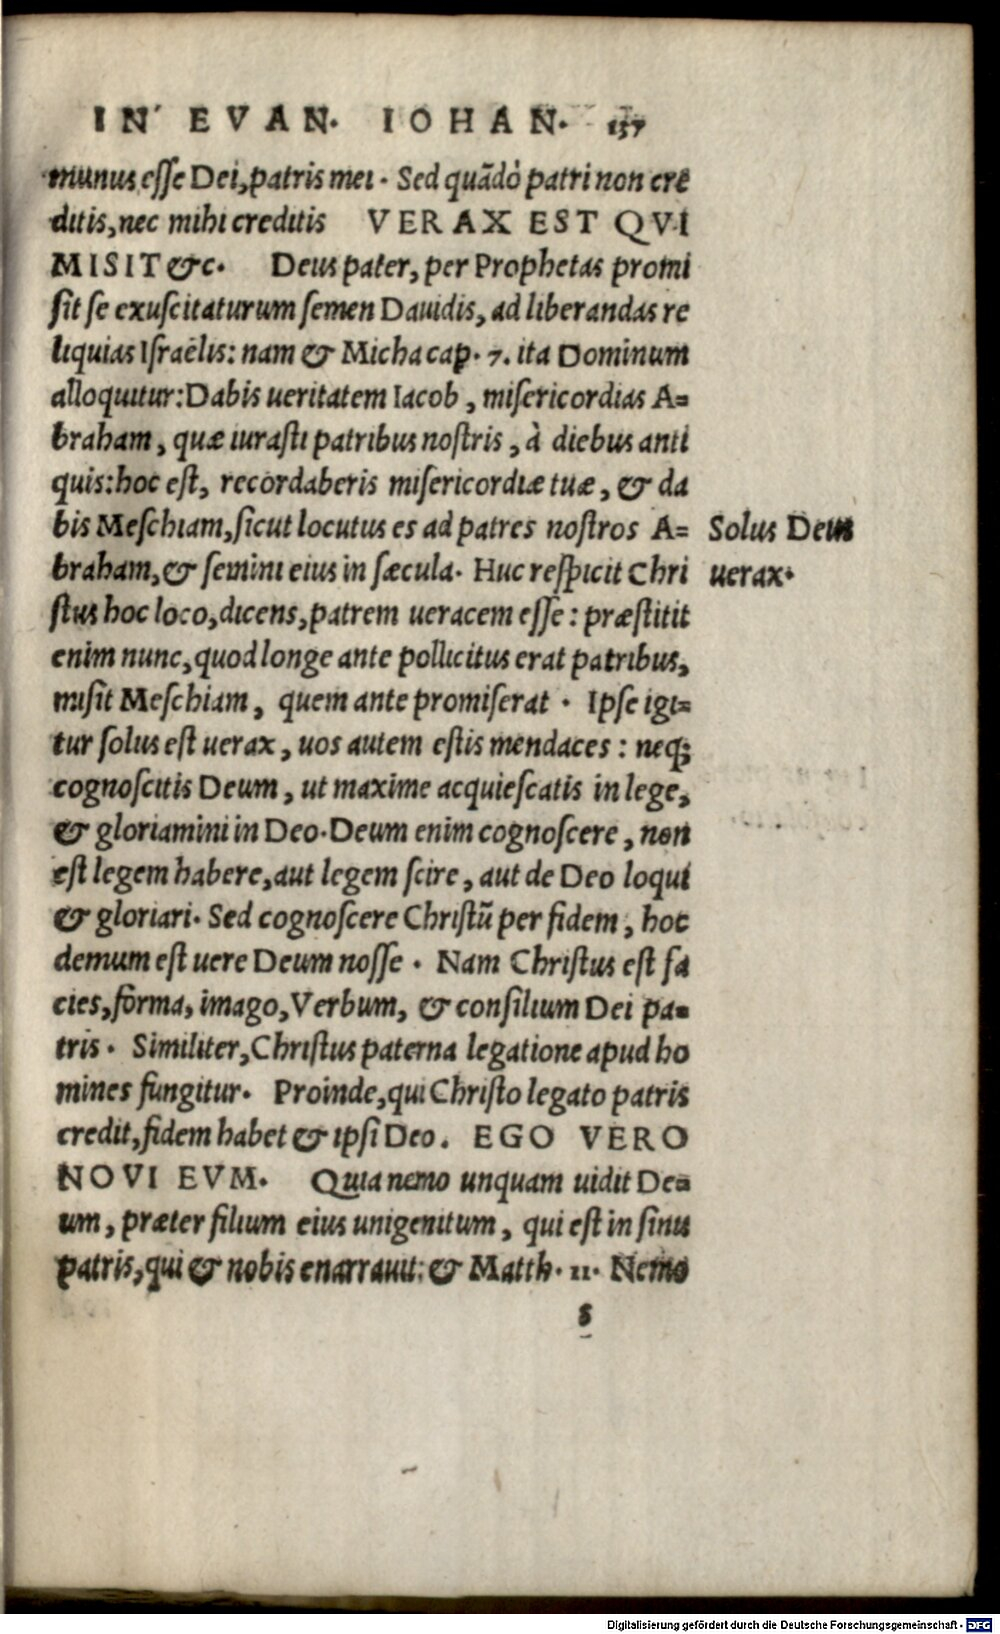 IN EVAN. IOHAN. 137
munus esse Dei, patris mei. Sed quādò patri non cre
ditis, nec mihi creditis VERAX EST QVI
MISIT &c. Deus pater, per Prophetas promi
sit se exuscitaturum semen Dauidis, ad liberandas re
liquias Israëlis: nam & Micha cap. 7. ita Dominum
alloquitur: Dabis ueritatem Iacob, misericordias A=
braham, quæ iurasti patribus nostris, à diebus anti
quis: hoc est, recordaberis misericordiæ tuæ, & da
bis Meschiam, sicut locutus es ad patres nostros A=
braham, & semini eius in sæcula. Huc respicit Chri
stus hoc loco, dicens, patrem ueracem esse: præstitit
enim nunc, quod longe ante pollicitus erat patribus,
misit Meschiam, quem ante promiserat. Ipse igi=
tur solus est uerax, uos autem estis mendaces: neq;
cognoscitis Deum, ut maxime acquiescatis in lege,
& gloriamini in Deo. Deum enim cognoscere, non
est legem habere, aut legem scire, aut de Deo loqui
& gloriari. Sed cognoscere Christū per fidem, hoc
demum est uere Deum nosse. Nam Christus est fa
cies, forma, imago, Verbum, & consilium Dei pa=
tris. Similiter, Christus paterna legatione apud ho
mines fungitur. Proinde, qui Christo legato patris
credit, fidem habet & ipsi Deo. EGO VERO
NOVI EVM. Quia nemo unquam uidit De=
um, præter filium eius unigenitum, qui est in sinu
patris, qui & nobis enarrauit: & Matth. 11. Nemo
s
Solus Deus
uerax.
Digitalisierung gefördert durch die Deutsche Forschungsgemeinschaft - DFG